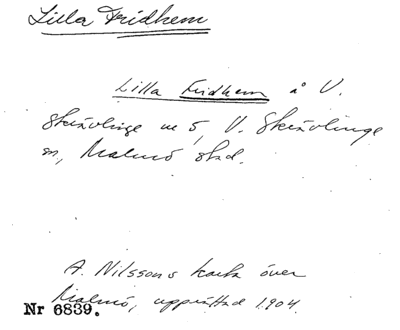 Lilla Fridhem
Lilla Fridhem å V.
Skrävlinge nr 5, V. Skrävlinge
sn, Malmö stad.
A. Nilssons karta över
Malmö, upprättad 1904.
Nr 6839.